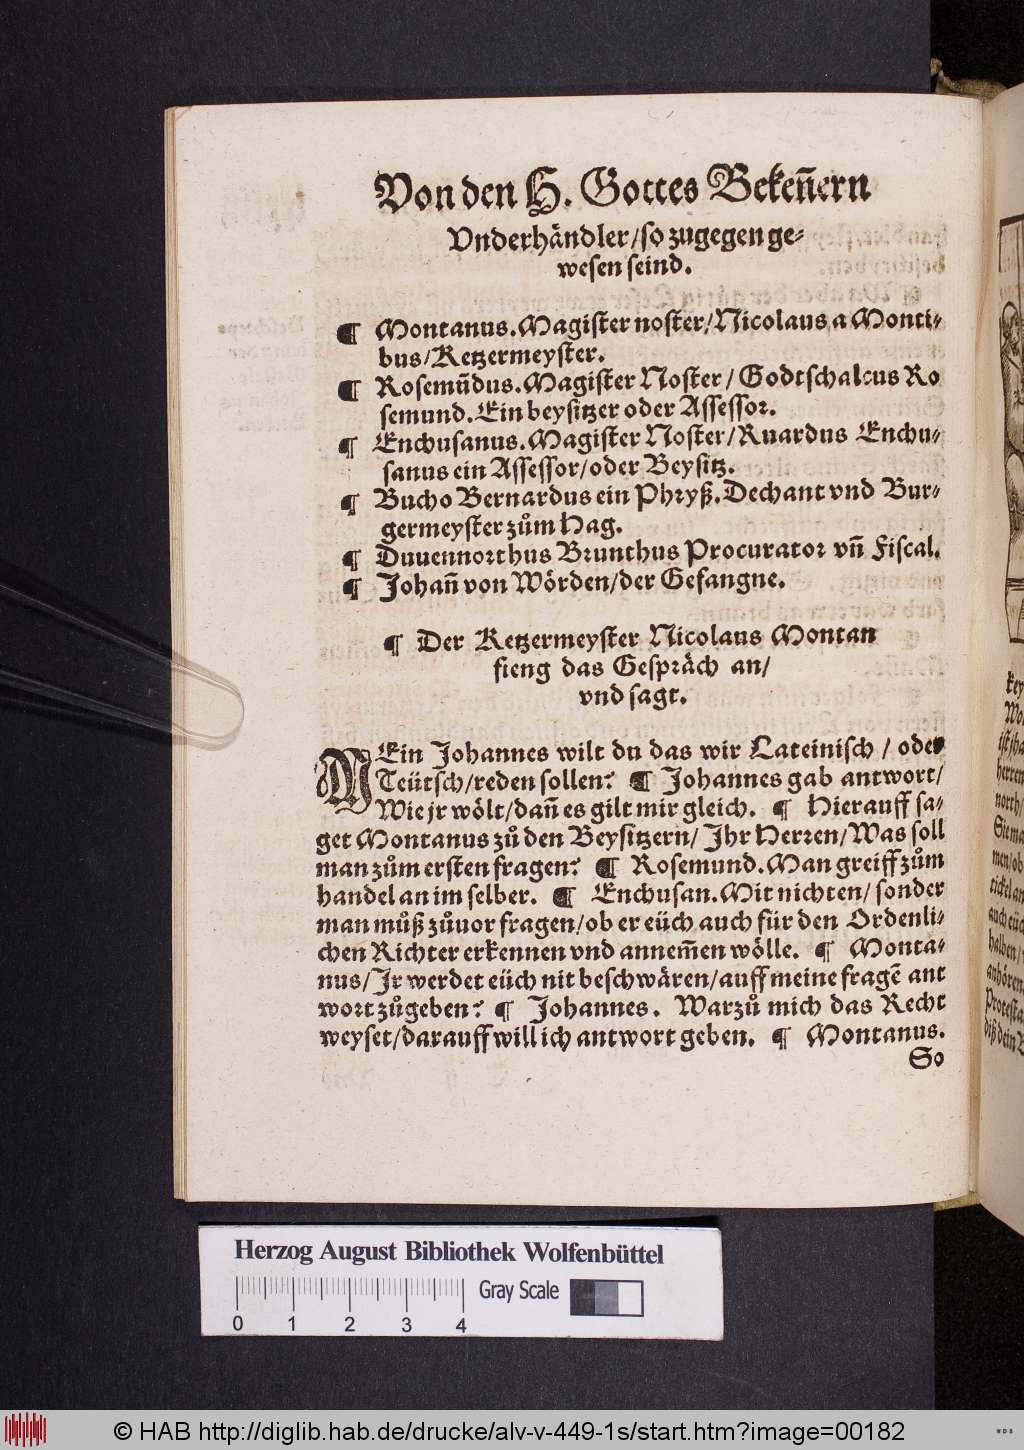 Von den H. Gottes Bekeñern
Vnderhändler/so zugegen ge-
wesen seind.
¶ Montanus. Magister noster/Nicolaus a Monti-
bus/Ketzermeyster.
¶ Rosemũdus. Magister Noster/ Godtschalcus Ro
semund. Ein beysitzer oder Assessor.
¶ Enchusanus. Magister Noster/Ruardus Enchu-
sanus ein Assessor/oder Beysitz.
¶ Bucho Bernardus ein Phryß. Dechant vnd Bur-
germeyster zům Hag.
¶ Duuennorthus Brunthus Procurator vñ Fiscal.
¶ Johañ von Wörden/der Gefangne.
¶ Der Ketzermeyster Nicolaus Montan
fieng das Gespräch an/
vnd sagt.
MEin Johannes wilt du das wir Lateinisch / oder
Teütsch/reden sollen? ¶ Johannes gab antwort/
Wie jr wölt/dañ es gilt mir gleich. ¶ Hierauff sa-
get Montanus zů den Beysitzern/ Ihr Herren/Was soll
man zům ersten fragen? ¶ Rosemund. Man greiff zům
handel an im selber. ¶ Enchusan. Mit nichten/ sonder
man můß zůuor fragen/ob er eüch auch für den Ordenli-
chen Richter erkennen vnd annem̃en wölle. ¶ Monta-
nus/Ir werdet eüch nit beschwären/auff meine fragẽ ant
wort zůgeben? ¶ Johannes. Warzů mich das Recht
weyset/darauff will ich antwort geben. ¶ Montanus.
So
key
herren
north/
men/ob
tickel an
halben/
anhören
Herzog August Bibliothek Wolfenbüttel
Gray Scale
0 1 2 3 4
© HAB http://diglib.hab.de/drucke/alv-v-449-1s/start.htm?image=00182